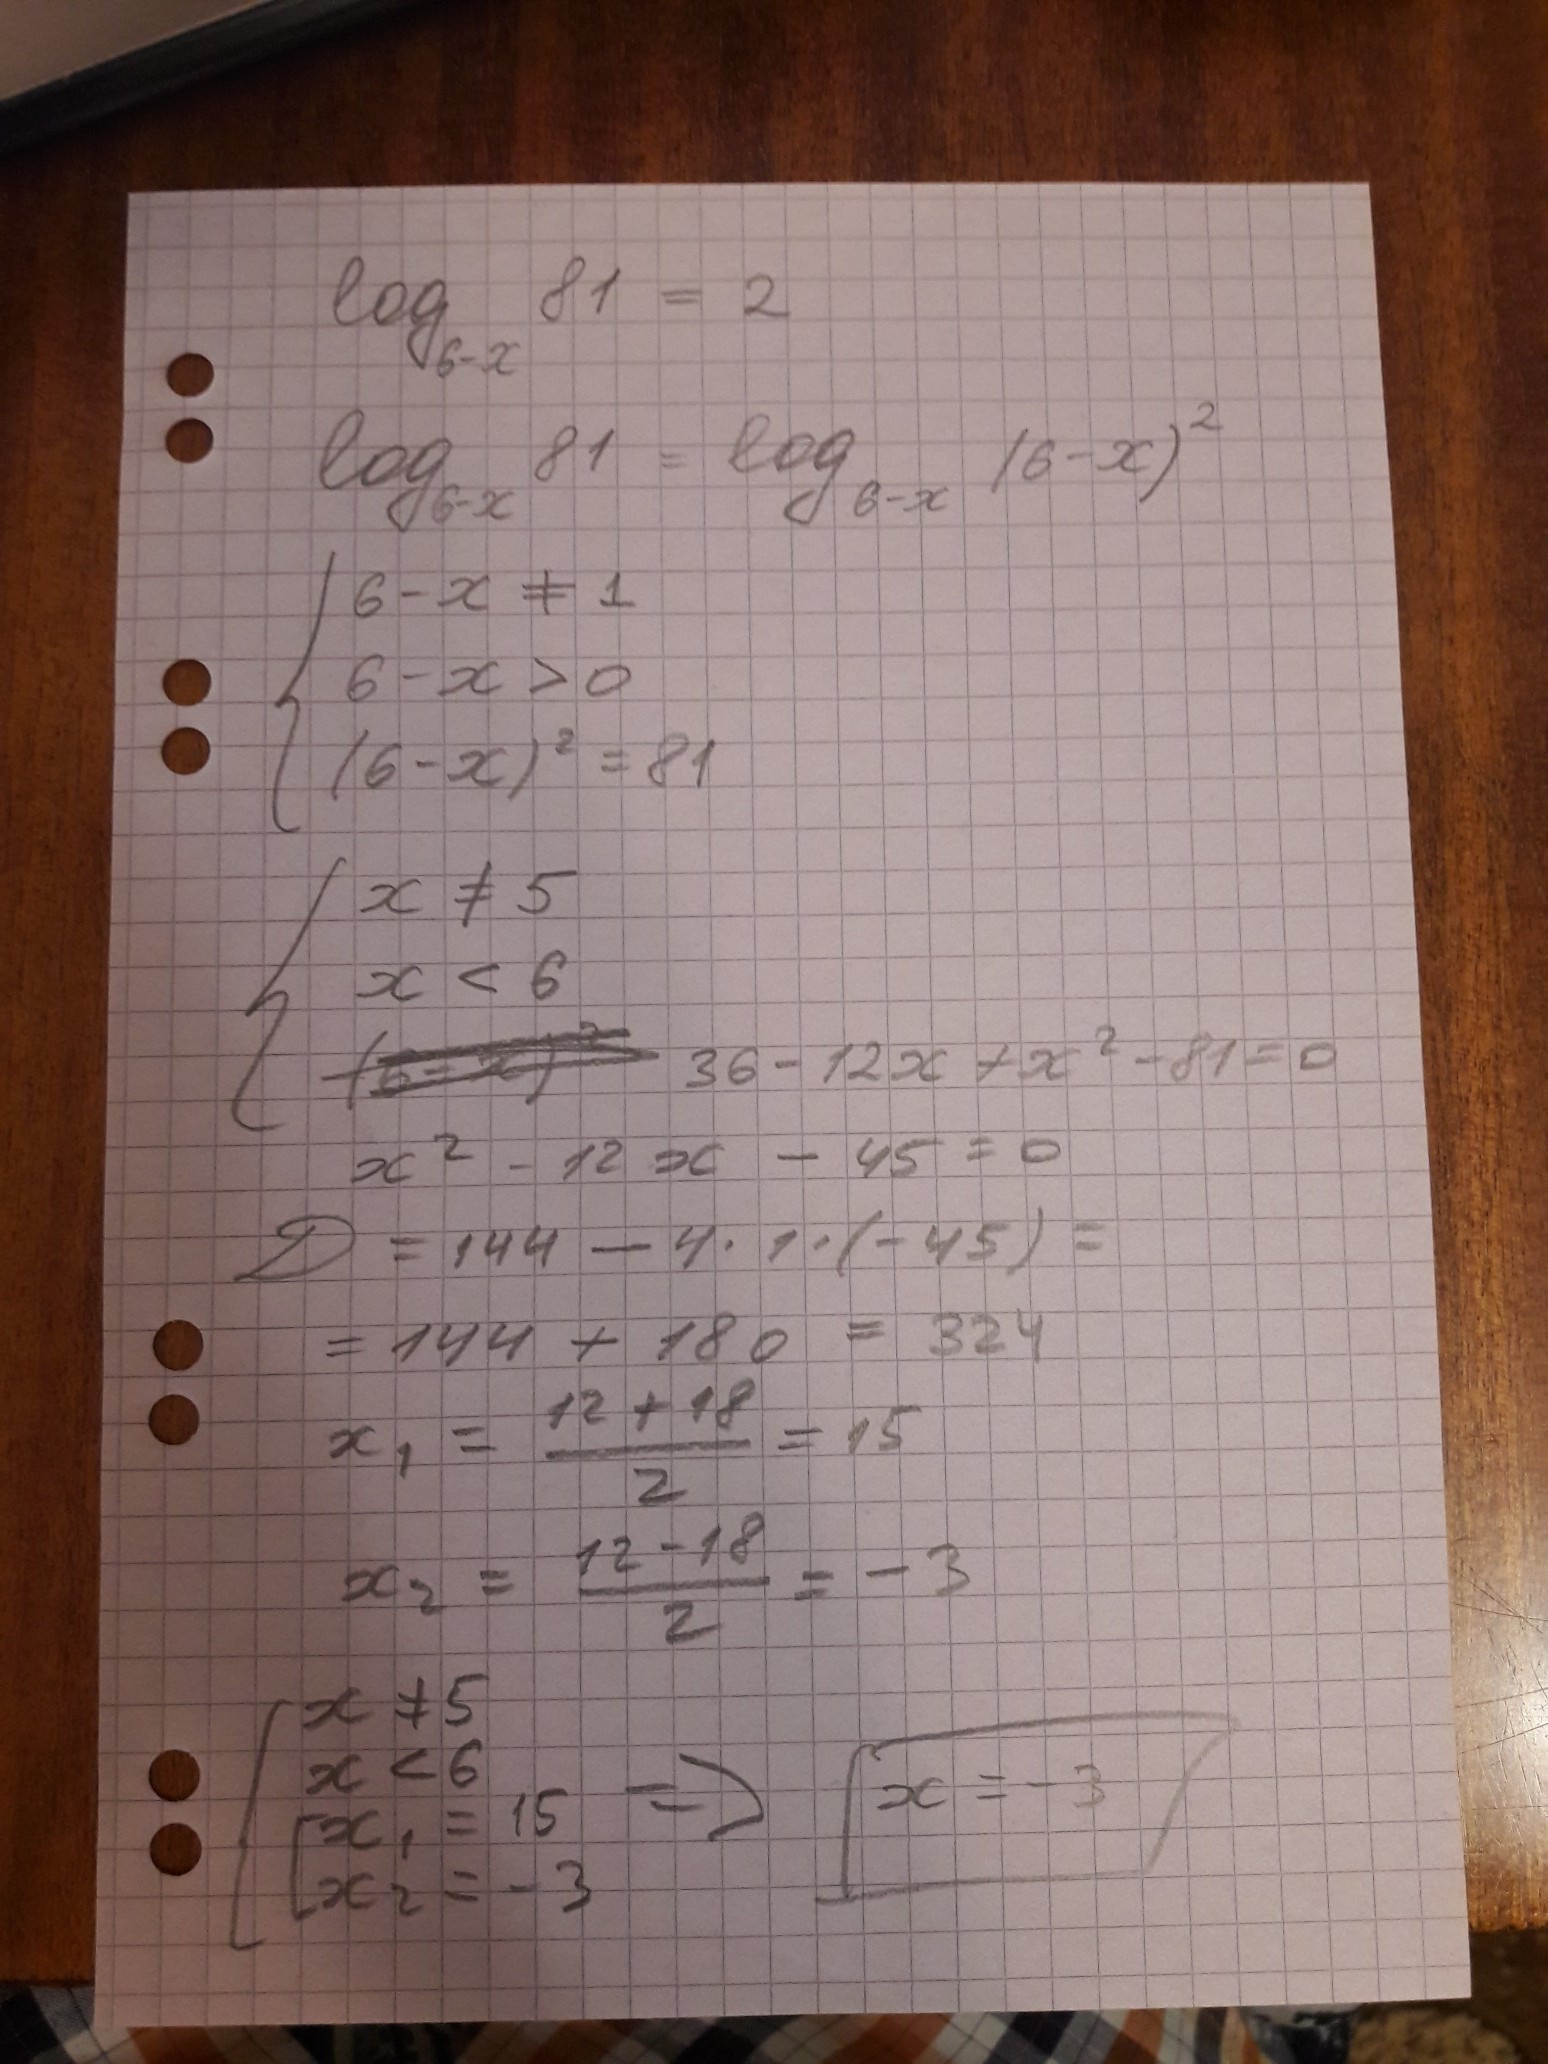 log_{6-x} 81 = 2
log_{6-x} 81 = log_{6-x} (6-x)²
6-x ≠ 1
6-x > 0
(6-x)² = 81
x ≠ 5
x < 6
36-12x+x²-81=0
x² - 12x - 45 = 0
D = 144 - 4·1·(-45) =
= 144 + 180 = 324
x₁ = (12+18)/2 = 15
x₂ = (12-18)/2 = -3
x ≠ 5
x < 6 => x = -3
x₁ = 15
x₂ = -3